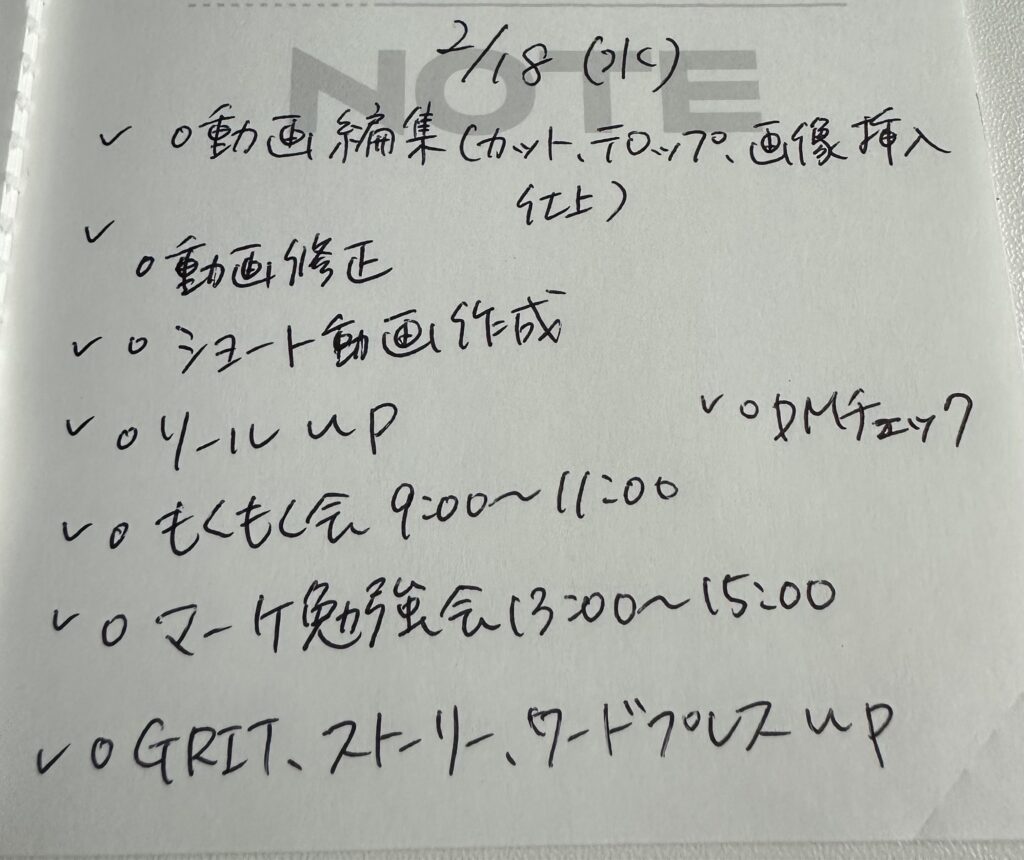 NOTE
2/18 (水)
✓ ○動画編集(カット、テロップ、画像挿入
仕上)
✓ ○動画修正
✓ ○ショート動画作成
✓ ○リールup
✓ ○DMチェック
✓ ○もくもく会 9:00~11:00
✓ ○マーケ勉強会 13:00~15:00
✓ ○GRIT、ストーリー、ワードプレスup